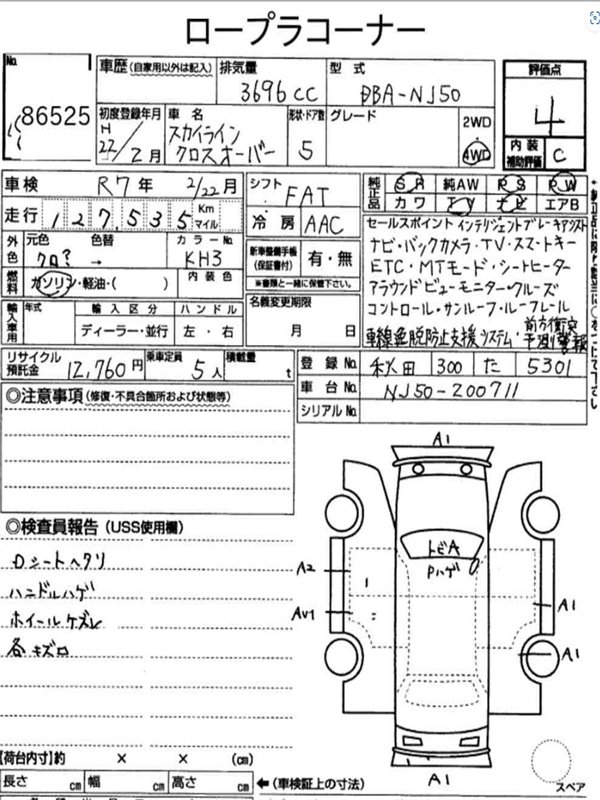 ロープラコーナー
No.
86525
車歴(自家用以外は記入)
排気量
3696cc
型式
DBA-NJ50
評価点
4
内装補助評価
C
初度登録年月
H
22/2月
車名
スカイライン
クロスオーバー
形状・ドア数
5
グレード
2WD
4WD
車検
R7年 2/22月
シフト
FAT
純正品
SR 純AW PS PW
カワ TV ナビ エアB
走行
127,535
Km
マイル
冷房
AAC
セールスポイント インテリジェントブレーキアシスト
ナビ・バックカメラ・TV・スマートキー
ETC・MTモード・シートヒーター
アラウンドビューモニター・クルーズ
コントロール・サンルーフ・ルーフレール
車線逸脱防止支援システム・前方衝突
予測警報
外色
元色 色替
クロ? →
カラーNo.
KH3
新車整備手帳
(保証書付)
有・無
※書類と一緒に保管下さい。
燃料
ガソリン・軽油・( )
内装色
名義変更期限
月 日
輸入車用
年式
輸入区分
ディーラー・並行
ハンドル
左・右
リサイクル預託金
12,760円
乗車定員
5人
積載量
t
登録No.
秋田 300 た 5301
車台No.
NJ50-200711
シリアルNo.
◎注意事項(修復・不具合箇所および状態等)
◎検査員報告(USS使用欄)
Dシートヘタリ
ハンドルハゲ
ホイールケズレ
各キズロ
A1
トビA
Pハゲ
A2
AU1
A1
A1
A1
スペア
【荷台内寸】約 × × (cm)
長さ cm 幅 cm 高さ cm
←(車検証上の寸法)